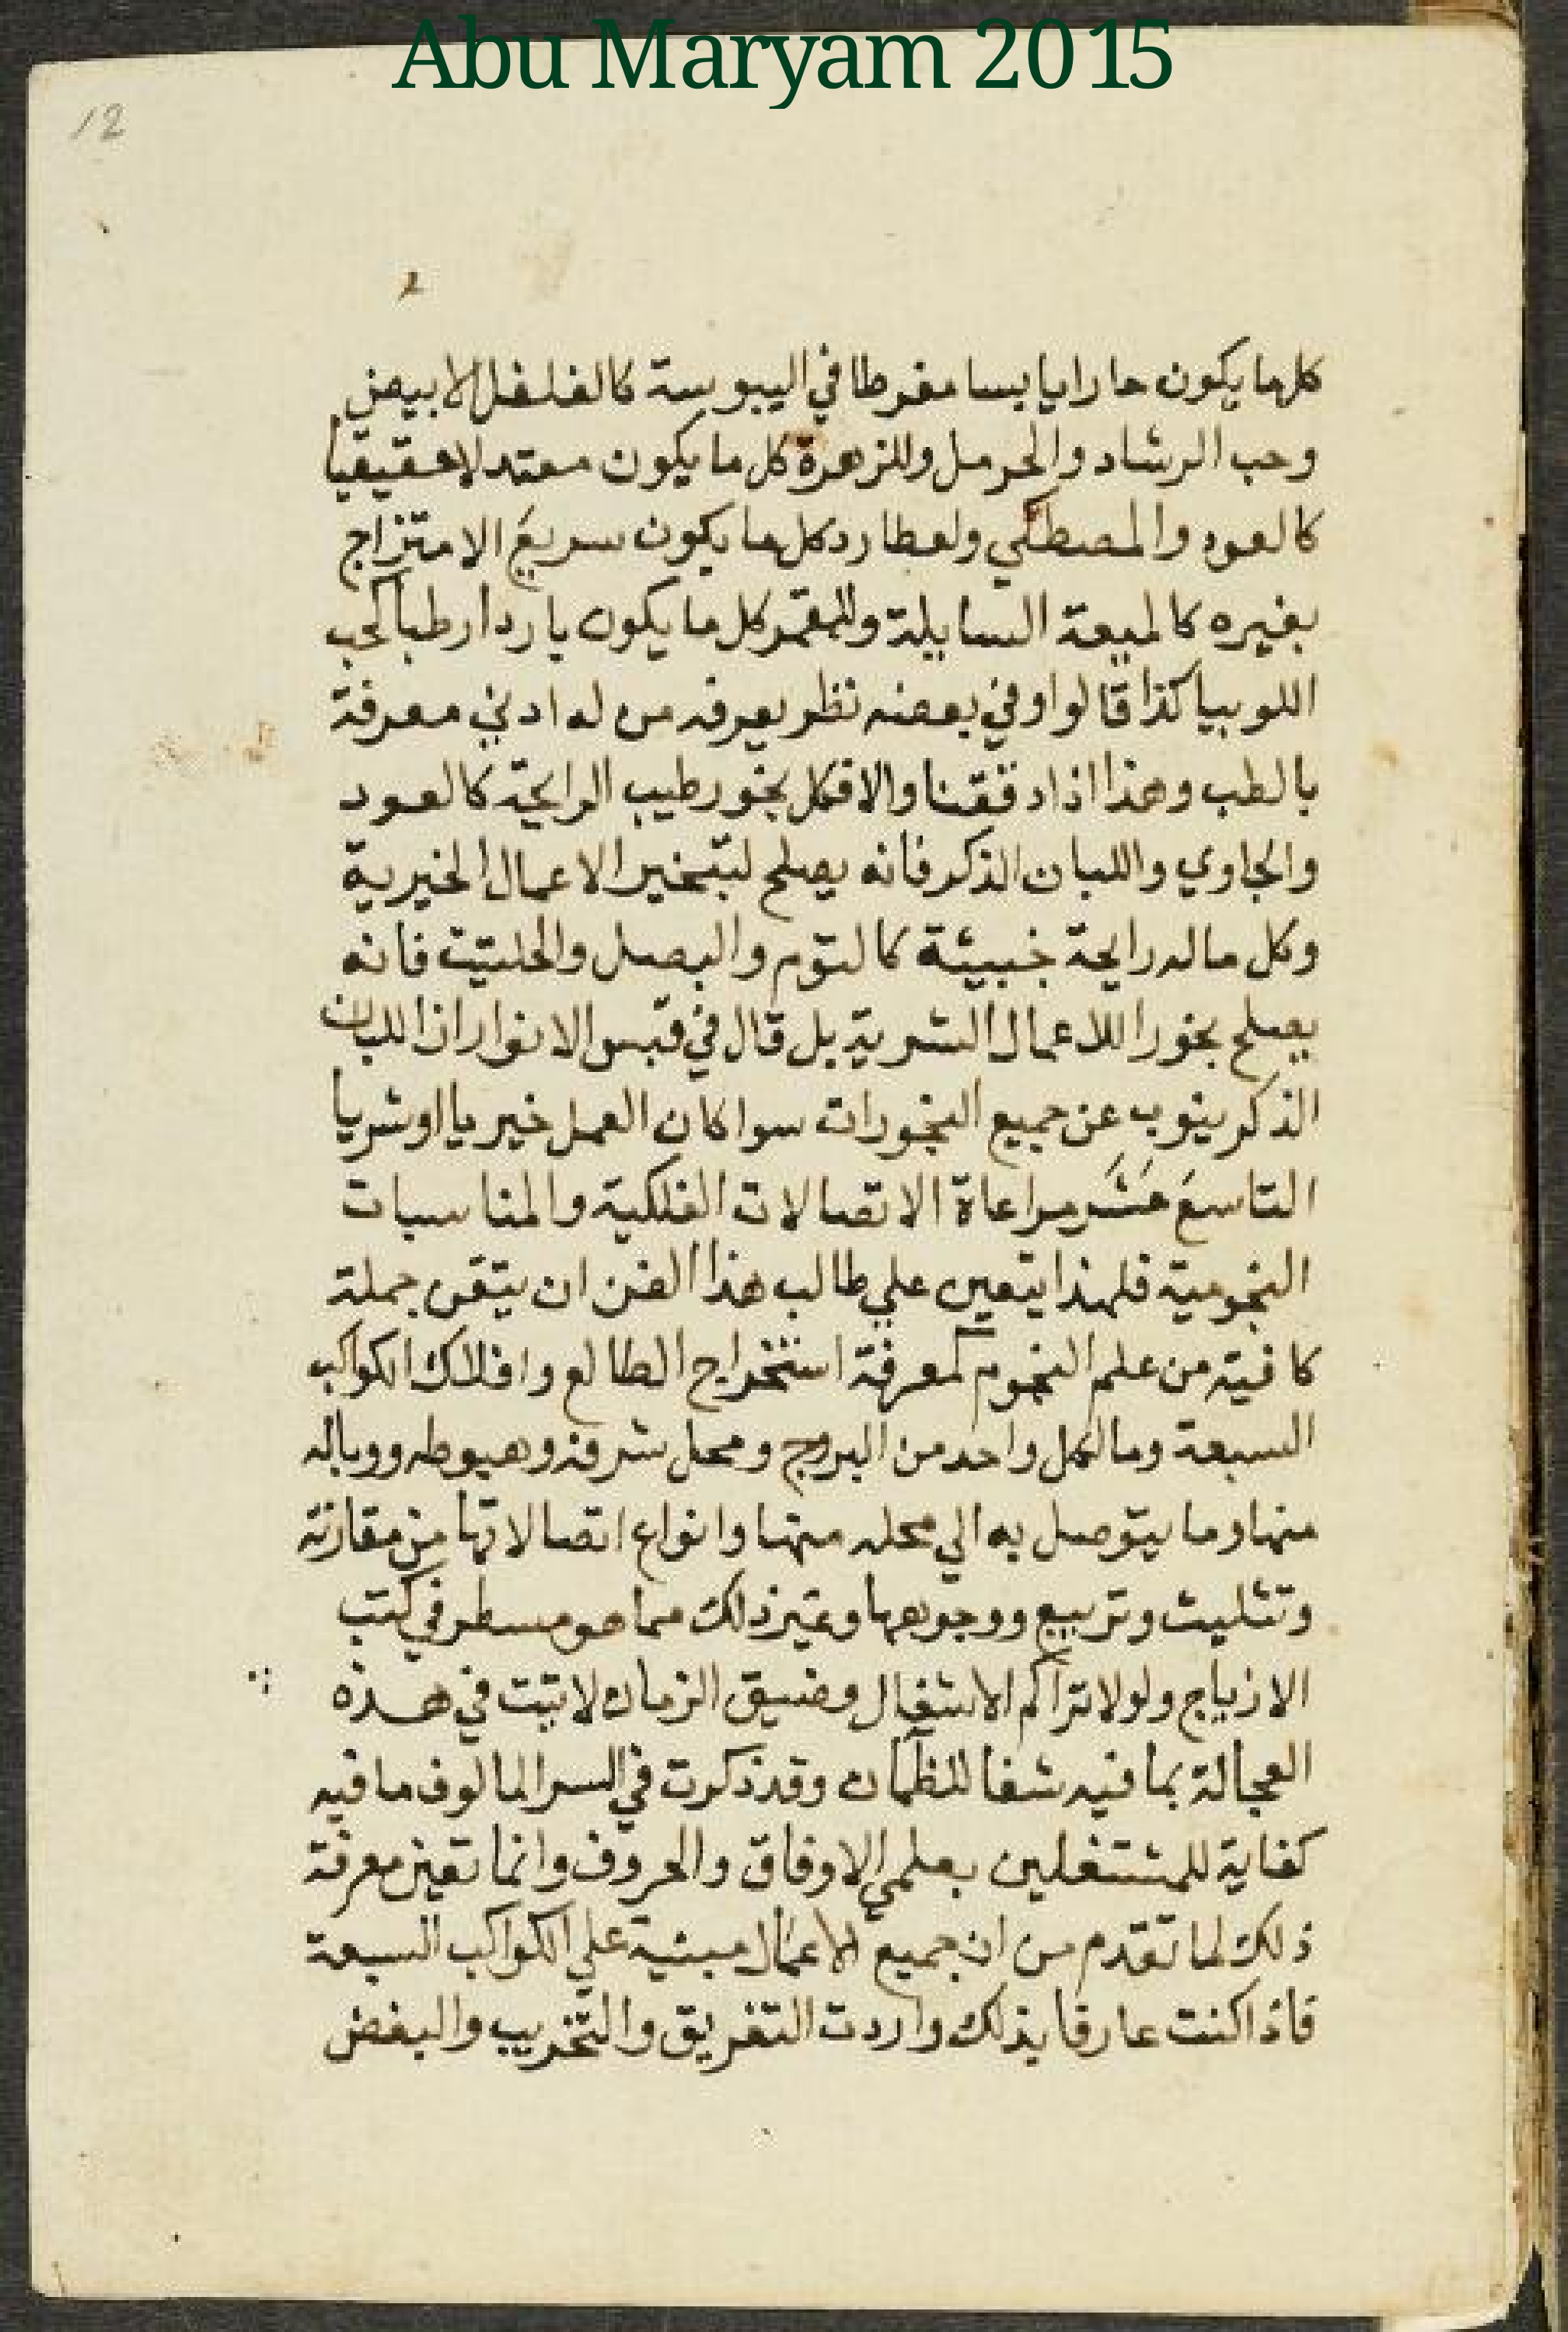 Abu Maryam 2015
12
كلما يكون حارا يابسا مفرطا في اليبوسة كالفلفل الابيض
وحب الرشاد والحرمل وللزهرة كل ما يكون معتدلا حقيقيا
كالعود والمصطكي ولعطارد كل ما يكون سريع الامتزاج
بغيره كالميعة السايلة وللقمر كل ما يكون باردا رطبا كحب
اللوبيا كذا قالوا وفي بعضه نظر يعرفه من له ادني معرفة
بالطب وهذا اذا دققنا والا فكل بخور طيب الرايحة كالعود
والجاوي واللبان الذكر فانه يصلح لتبخير الاعمال الخيرية
وكل ماله رايحة خبيثة كالتوم والبصل والحلتيت فانه
يصلح بخورا للاعمال الشرية بل قال في قبس الانوار ان اللبان
الذكر ينوب عن جميع البخورات سوا كان العمل خيريا او شريا
التاسع عشر مراعاة الاتصالات الفلكية والمناسبات
النجومية فلهذا يتعين علي طالب هذا الفن ان يتقن جملة
كافية من علم النجوم كمعرفة استخراج الطالع وافلاك الكواكب
السبعة وما لكل واحد من البروج ومحل شرفه وهبوطه ووباله
منها وما يتوصل به الي محله منها وانواع اتصالاتها من مقارنة
وتثليث وتربيع ووجوهها وغير ذلك مما هو مسطر في كتب
الازياج ولولا تراكم الاشغال وضيق الزمان لاتيت في هذه
العجالة بما فيه شفا للظمآن وقد ذكرت في السر المالوف ما فيه
كفاية للمشتغلين بعلمي الاوفاق والحروف وانما تعين معرفة
ذلك لما تقدم من ان جميع الاعمال مبنية علي الكواكب السبعة
فاذا كنت عارفا بذلك واردت التفريق والتخريب والبغض